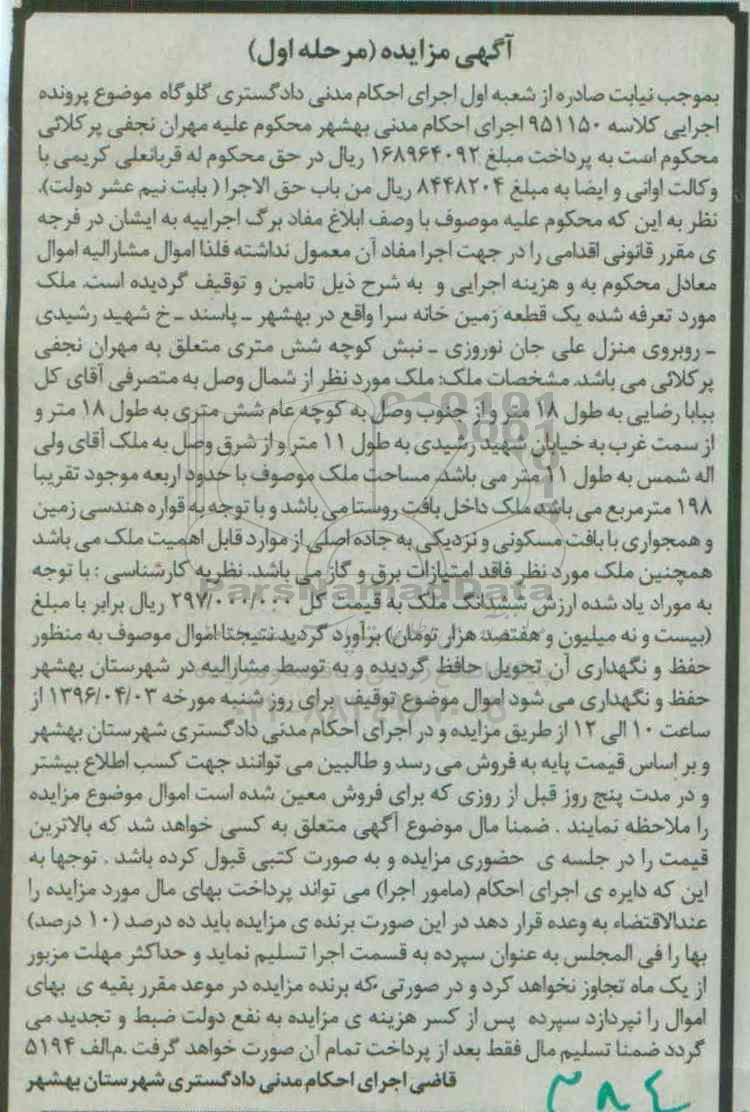 آگهی مزایده (مرحله اول)
بموجب نیابت صادره از شعبه اول اجرای احکام مدنی دادگستری گلوگاه موضوع پرونده
اجرایی کلاسه ۹۵۱۱۵۰ اجرای احکام مدنی بهشهر محکوم علیه مهران نجفی پرکلائی
محکوم است به پرداخت مبلغ ۱۶۸۹۶۴۰۹۲ ریال در حق محکوم له قربانعلی کریمی با
وکالت اوانی و ایضا به مبلغ ۸۴۴۸۲۰۴ ریال من باب حق الاجرا ( بابت نیم عشر دولت).
نظر به این که محکوم علیه موصوف با وصف ابلاغ مفاد برگ اجراییه به ایشان در فرجه
ی مقرر قانونی اقدامی را در جهت اجرا مفاد آن معمول نداشته فلذا اموال مشارالیه اموال
معادل محکوم به و هزینه اجرایی و به شرح ذیل تامین و توقیف گردیده است. ملک
مورد تعرفه شده یک قطعه زمین خانه سرا واقع در بهشهر - پاسند - خ شهید رشیدی
- روبروی منزل علی جان نوروزی - نبش کوچه شش متری متعلق به مهران نجفی
پرکلائی می باشد. مشخصات ملک: ملک مورد نظر از شمال وصل به متصرفی آقای کل
بابا رضایی به طول ۱۸ متر و از جنوب وصل به کوچه عام شش متری به طول ۱۸ متر و
از سمت غرب به خیابان شهید رشیدی به طول ۱۱ متر و از شرق وصل به ملک آقای ولی
اله شمس به طول ۱۱ متر می باشد. مساحت ملک موصوف با حدود اربعه موجود تقریبا
۱۹۸ مترمربع می باشد ملک داخل بافت روستا می باشد و با توجه به قواره هندسی زمین
و همجواری با بافت مسکونی و نزدیکی به جاده اصلی از موارد قابل اهمیت ملک می باشد
همچنین ملک مورد نظر فاقد امتیازات برق و گاز می باشد. نظریه کارشناسی : با توجه
به موراد یاد شده ارزش ششدانگ ملک به قیمت کل ۲۹۷/۰۰۰/۰۰۰ ریال برابر با مبلغ
(بیست و نه میلیون و هفتصد هزار تومان) برآورد گردید نتیجتا اموال موصوف به منظور
حفظ و نگهداری آن تحویل حافظ گردیده و به توسط مشارالیه در شهرستان بهشهر
حفظ و نگهداری می شود اموال موضوع توقیف برای روز شنبه مورخه ۱۳۹۶/۰۴/۰۳ از
ساعت ۱۰ الی ۱۲ از طریق مزایده و در اجرای احکام مدنی دادگستری شهرستان بهشهر
و بر اساس قیمت پایه به فروش می رسد و طالبین می توانند جهت کسب اطلاع بیشتر
و در مدت پنج روز قبل از روزی که برای فروش معین شده است اموال موضوع مزایده
را ملاحظه نمایند . ضمنا مال موضوع آگهی متعلق به کسی خواهد شد که بالاترین
قیمت را در جلسه ی حضوری مزایده و به صورت کتبی قبول کرده باشد . توجها به
این که دایره ی اجرای احکام (مامور اجرا) می تواند پرداخت بهای مال مورد مزایده را
عندالاقتضاء به وعده قرار دهد در این صورت برنده ی مزایده باید ده درصد (۱۰ درصد)
بها را فی المجلس به عنوان سپرده به قسمت اجرا تسلیم نماید و حداکثر مهلت مزبور
از یک ماه تجاوز نخواهد کرد و در صورتی که برنده مزایده در موعد مقرر بقیه ی بهای
اموال را نپردازد سپرده پس از کسر هزینه ی مزایده به نفع دولت ضبط و تجدید می
گردد ضمنا تسلیم مال فقط بعد از پرداخت تمام آن صورت خواهد گرفت .م.الف ۵۱۹۴
قاضی اجرای احکام مدنی دادگستری شهرستان بهشهر
ParsNamadData